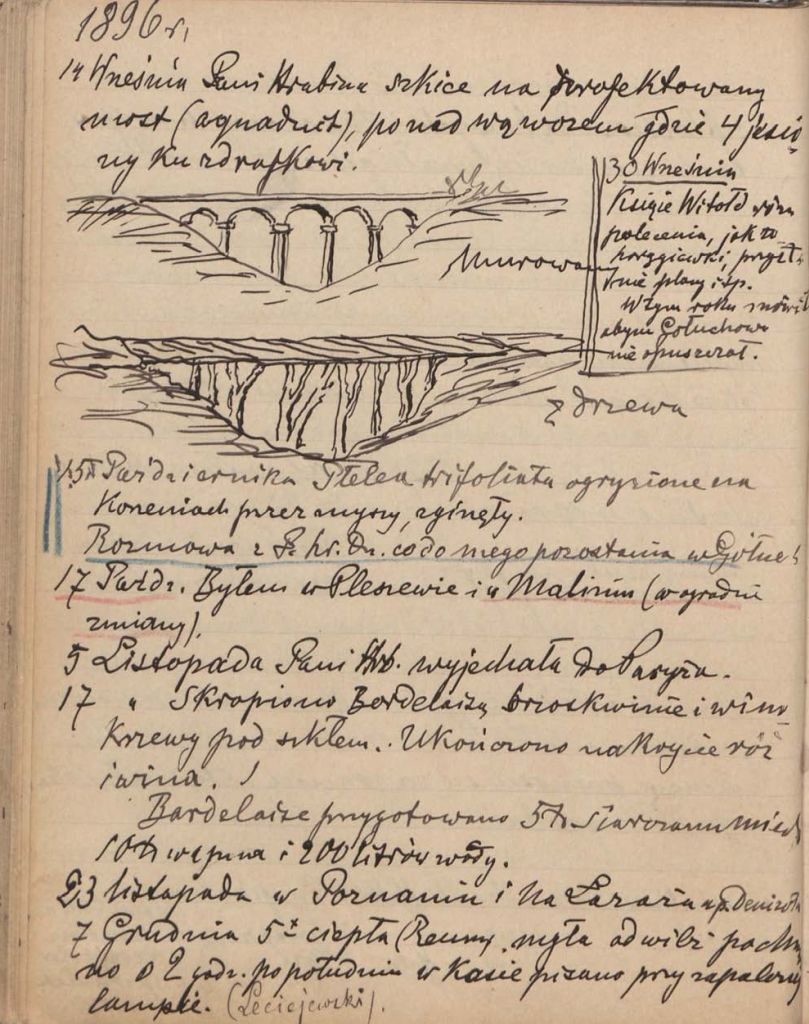 1896 r.
14 Wneśnia Pani Hrabina szkice na projektowany
most (aquaduct), ponad wąwozem gdzie 4 jesio-
ny ku zdrojkowi.
30 Wneśnia
Książe Witold
polecenia, jak to
plany i sp.
W tym roku mówił
abym Gołuchowa
nie opuszczał.
Murowany
z drzewa
15 Paździenika Ptelea trifoliata ogryzione na
Koneniach przez myszy, zginęły.
Rozmowa z P. hr. Dz. co do mego pozostania w Gołuch
17 Paźdz. Byłem w Pleszewie i w Maliniu (w ogrodzie
zmiany).
5 Listopada Pani Hrb. wyjechała do Paryża.
17 " Skropiono Bordelaizą brzoskwinie i winne
Krzewy pod szkłem. Ukończono nakrycie róż
i wina.
Bordelaize przygotowano 5 tt Siarczanu miedzi
10 tt wapna i 200 litrów wody.
23 listopada w Poznaniu i na Łazarzu u p. Denizota
7 Grudnia 5° ciepła (Reaum. mgła odwilż pochmu
no o 2 godz. popołudniu w Kasie pisano przy zapalonej
lampie. (Leciejewski).